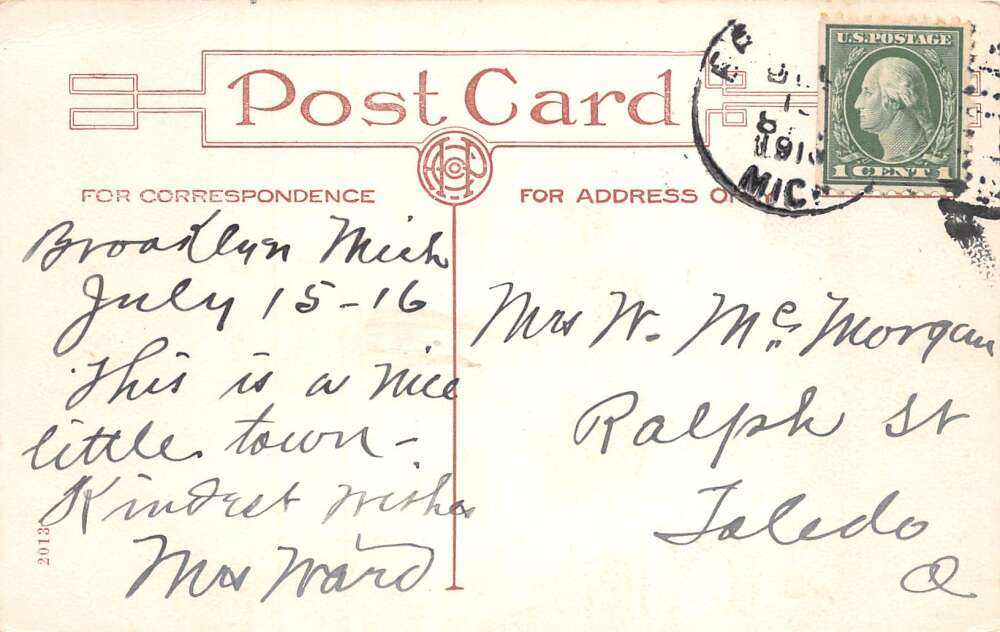 Post Card
FOR CORRESPONDENCE
FOR ADDRESS ON
U.S. POSTAGE
1 CENT 1
MICH
Brooklyn Mich
July 15-16
This is a nice
little town-
Kindest wishes
Mrs Ward
Mrs W. Mc. Morgan
Ralph St
Toledo
O
2013